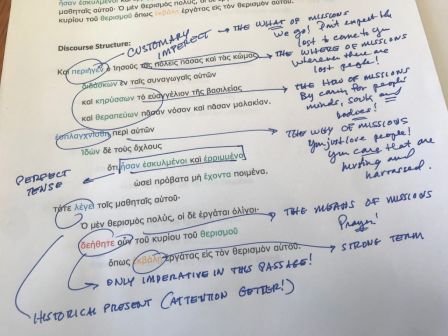 κυρίου τοῦ θερισμοῦ ὅπως ἐκβάλῃ ἐργάτας εἰς τὸν θερισμὸν αὐτοῦ.
Discourse Structure:
CUSTOMARY IMPERFECT
Καὶ περιῆγεν ὁ Ἰησοῦς τὰς πόλεις πάσας καὶ τὰς κώμας
διδάσκων ἐν ταῖς συναγωγαῖς αὐτῶν
καὶ κηρύσσων τὸ εὐαγγέλιον τῆς βασιλείας
καὶ θεραπεύων πᾶσαν νόσον καὶ πᾶσαν μαλακίαν.
ἐσπλαγχνίσθη περὶ αὐτῶν
Ἰδὼν δὲ τοὺς ὄχλους
ὅτι ἦσαν ἐσκυλμένοι καὶ ἐρριμμένοι
ὡσεὶ πρόβατα μὴ ἔχοντα ποιμένα.
τότε λέγει τοῖς μαθηταῖς αὐτοῦ·
Ὁ μὲν θερισμὸς πολύς, οἱ δὲ ἐργάται ὀλίγοι·
δεήθητε οὖν τοῦ κυρίου τοῦ θερισμοῦ
ὅπως ἐκβάλῃ ἐργάτας εἰς τὸν θερισμὸν αὐτοῦ.
THE WHAT OF MISSIONS
We go! Don't expect the
lost to come to you
THE WHERE OF MISSIONS
Wherever there are
lost people!
THE HOW OF MISSIONS
By caring for people's
minds, souls, and
bodies!
THE WHY OF MISSIONS
You just love people!
You care that are
hurting and
harrassed.
PERFECT
TENSE
THE MEANS OF MISSIONS
Prayer!
STRONG TERM
ONLY IMPERATIVE IN THIS PASSAGE!
HISTORICAL PRESENT (ATTENTION GETTER!)